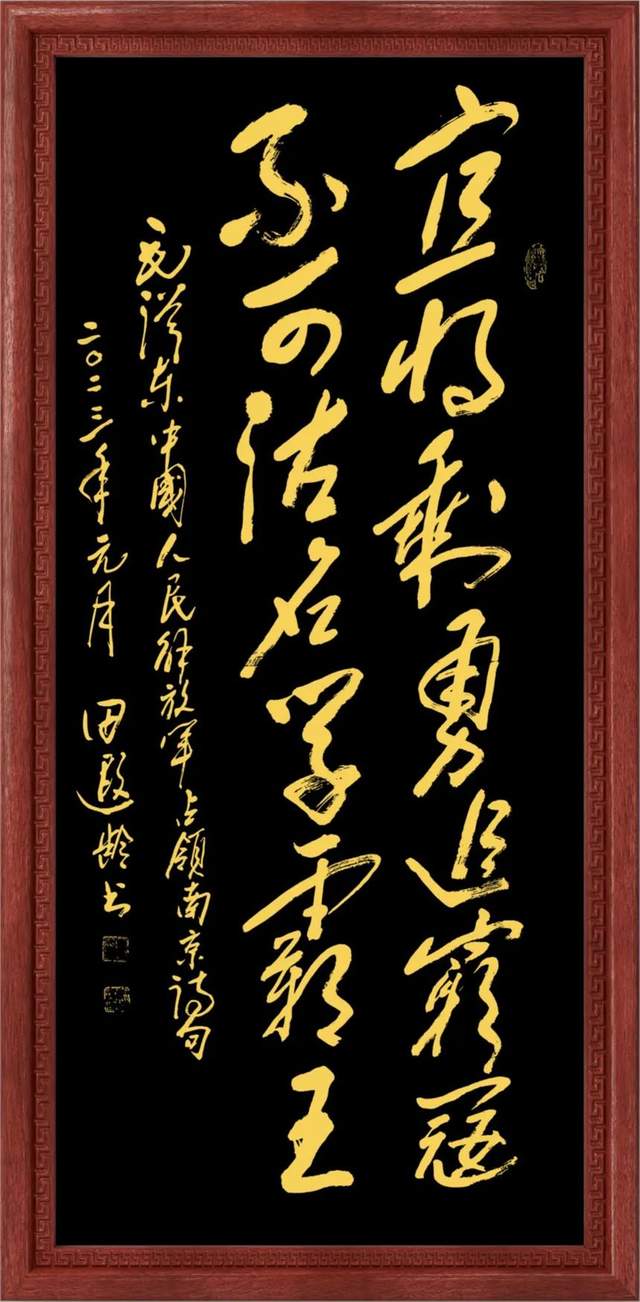 宜将剩勇追穷寇
不可沽名学霸王
毛泽东中國人民解放军占领南京诗句
二〇二三年元月 田遐龄书